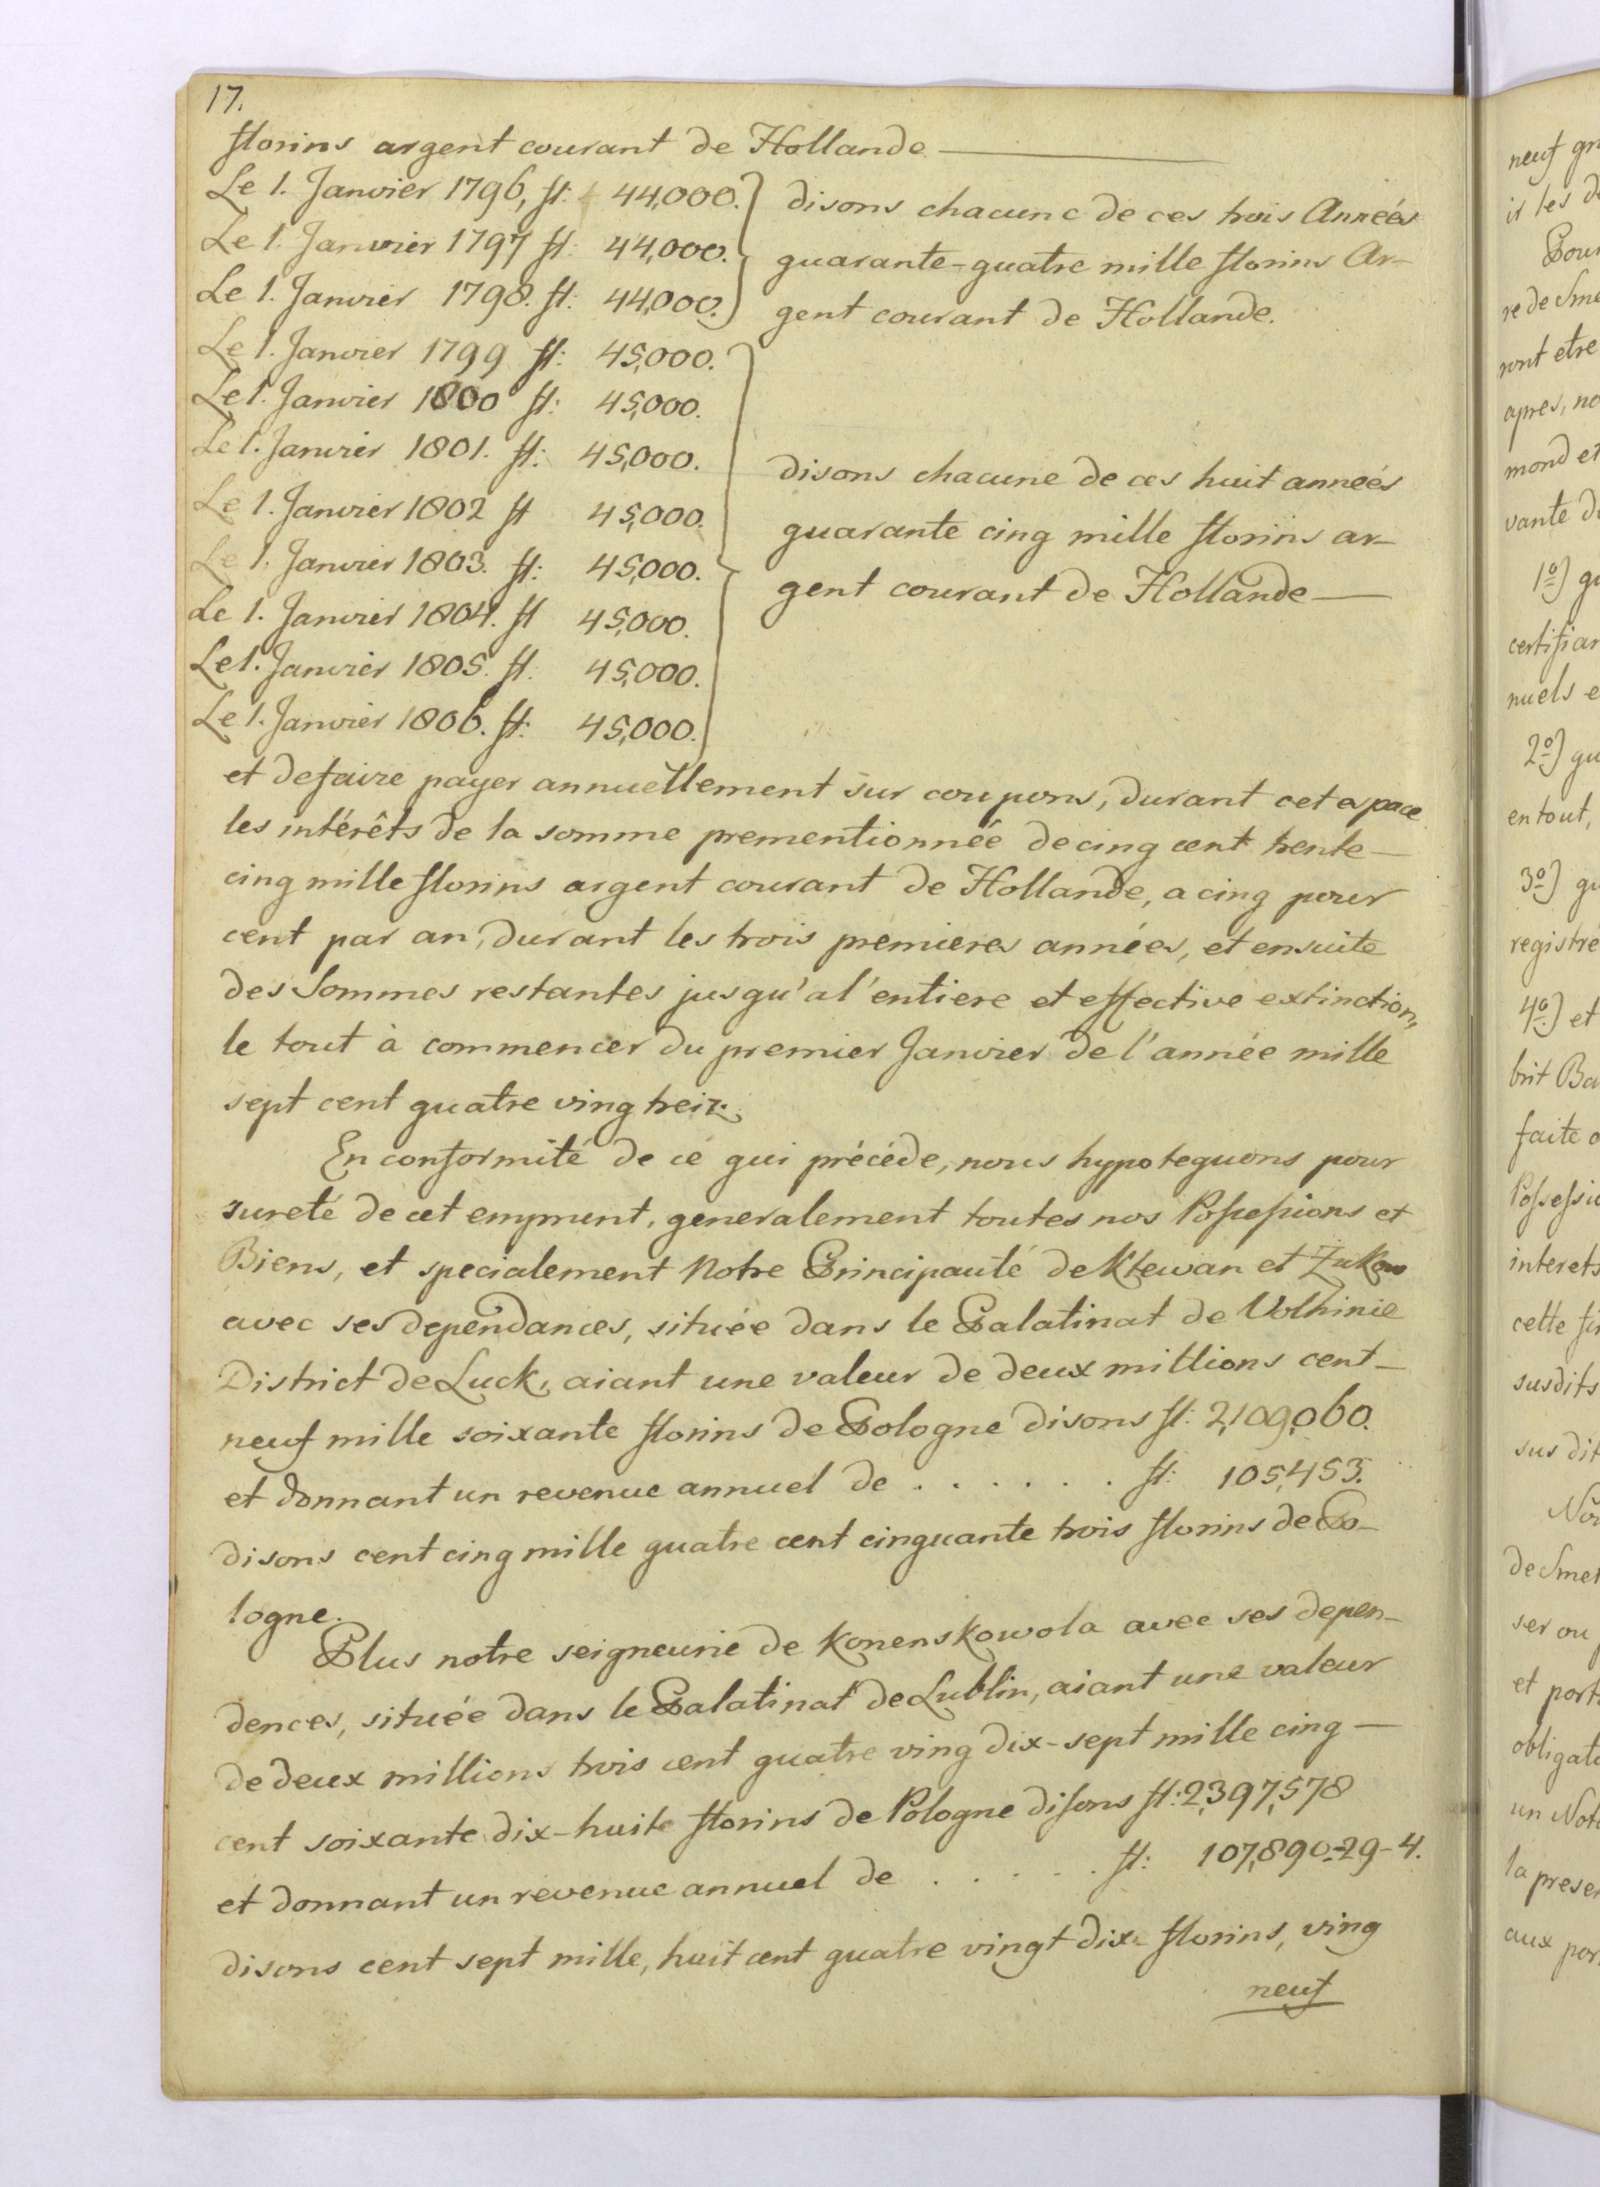 17.
florins argent courant de Hollande
Le 1. Janvier 1796, fl: 44,000.
Le 1. Janvier 1797 fl: 44,000.
Le 1. Janvier 1798. fl: 44,000.
disons chacune de ces trois Années
quarante-quatre mille florins Ar-
gent courant de Hollande.
Le 1. Janvier 1799 fl: 45,000.
Le 1. Janvier 1800 fl: 45,000.
Le 1. Janvier 1801. fl: 45,000.
Le 1. Janvier 1802 fl 45,000.
Le 1. Janvier 1803. fl: 45,000.
Le 1. Janvier 1804. fl 45,000.
Le 1. Janvier 1805. fl. 45,000.
Le 1. Janvier 1806. fl: 45,000.
disons chacune de ces huit années
quarante cinq mille florins ar-
gent courant de Hollande
et de faire payer annuellement sur coupons, durant cet espace
les intérêts de la somme prementionnée de cinq cent trente-
cinq mille florins argent courant de Hollande, a cinq pour
cent par an, durant les trois premieres années, et ensuite
des Sommes restantes jusqu'a l'entiere et effective extinction,
le tout à commencer du premier Janvier de l'année mille
sept cent quatre ving treiz.
En conformité de ce qui précéde, nous hypotequons pour
sureté de cet emprunt, generalement toutes nos Possessions et
Biens, et specialement Notre Principauté de Klewan et Zukow
avec ses dependances, située dans le Palatinat de Volhinie
District de Luck, aiant une valeur de deux millions cent-
neuf mille soixante florins de Pologne disons fl: 2,109,060.
et donnant un revenue annuel de . . . . . . fl: 105,453.
disons cent cinq mille quatre cent cinquante trois florins de Po-
logne.
Plus notre seigneurie de Konenskowola avec ses depen-
dences, située dans le Palatinat de Lublin, aiant une valeur
de deux millions trois cent quatre ving dix-sept mille cinq-
cent soixante dix-huite florins de Pologne disons fl: 2,397,578
et donnant un revenue annuel de . . . . . fl: 107,890-29-4.
disons cent sept mille, huit cent quatre vingt dix florins, ving
neuf
neuf
Pour
re de Sme
ront etre
apres, no
mond et
vante d
1º)
certifian
nuels e
2º)
en tout,
3º)
registré
4º) et
brit Ba
faite
Possessio
interets
cette fin
susdits
sus dit
No
de Smet
ser ou
et port
obligat
un Not
la prese
aux por